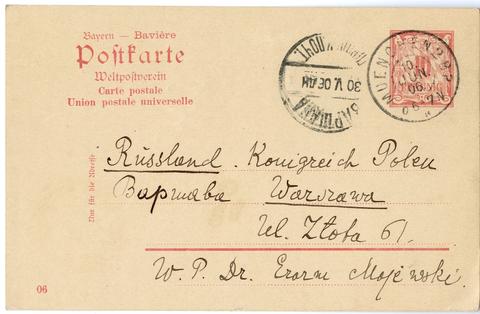 Bayern — Bavière
Postkarte
Weltpostverein
Carte postale
Union postale universelle
30 V. 06
ВАРШАВА
MUENCHEN 2 B.Z.
10.
JUN.
06.
Nur für die Adresse
Russland. Königreich Polen
Варшава Warszawa
Ul. Złota 61.
W. P. Dr. Erazm Majewski.
06